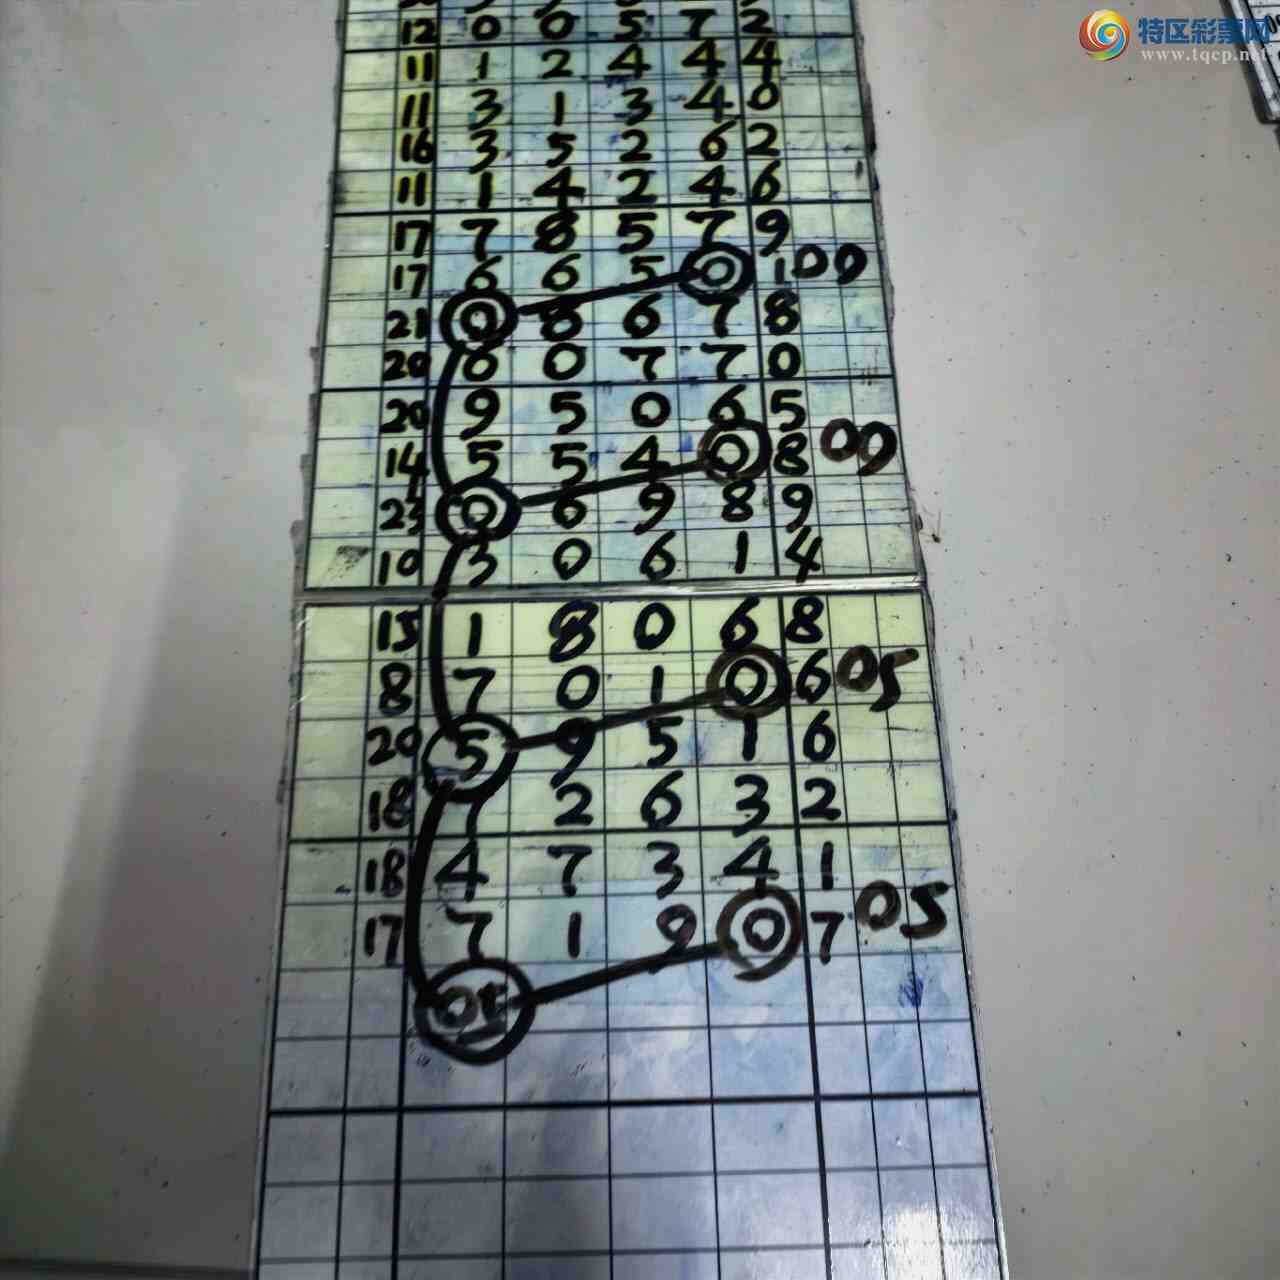 特区彩票网
www.tqcp.net
12 0 0 5 7 2
11 1 2 4 4 4
11 3 1 3 4 0
16 3 5 2 6 2
11 1 4 2 4 6
17 7 8 5 7 9
17 6 6 5 0 1 00
21 0 8 6 7 8
20 6 0 7 7 0
20 9 5 0 6 5
14 5 5 4 0 8 00
23 0 6 9 8 9
10 3 0 6 1 4
15 1 8 0 6 8
8 7 0 1 0 6 05
20 5 9 5 1 6
18 7 2 6 3 2
18 4 7 3 4 1
17 7 1 9 0 7 05